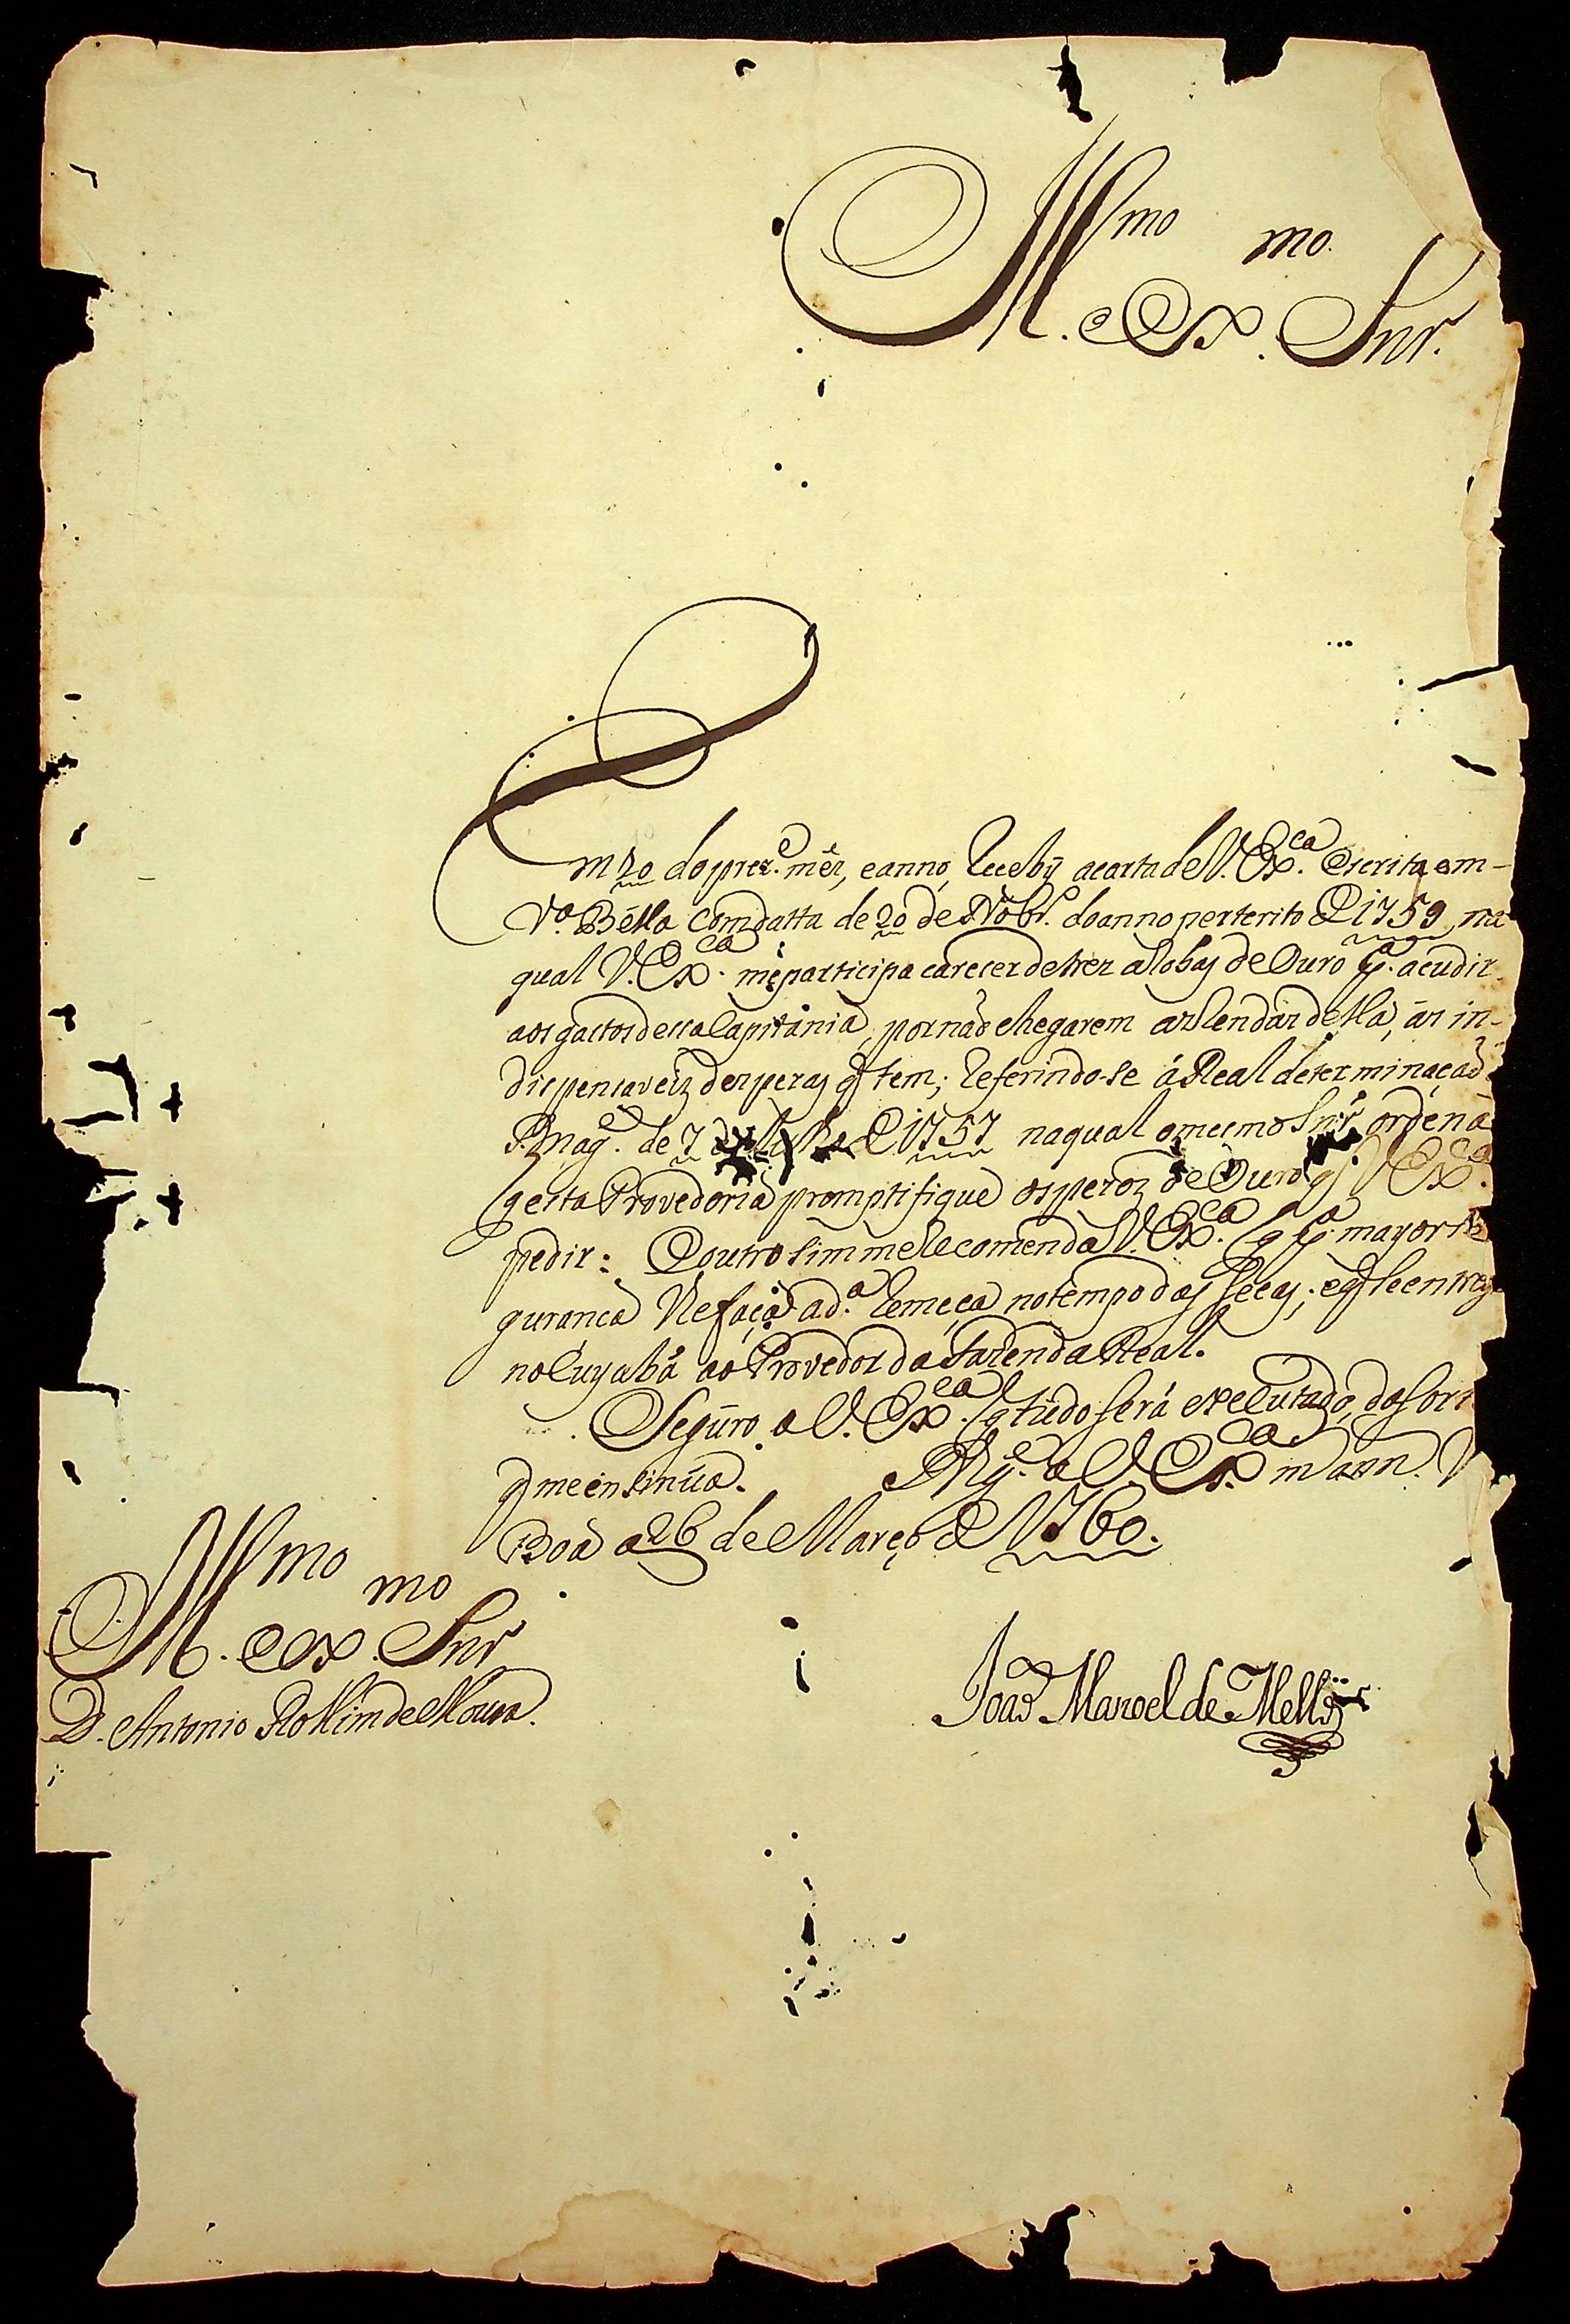 Ill.mo e Ex.mo Snr.
Em 20 do prez.e mêz, e anno, recebÿ a carta de V. Ex.ca escrita em-
V.a Bélla com datta de 20 de Nobr.o do anno perterito de 1759, na
qual V. Ex.ca me participa carecer de trez arobas de Ouro p.a acudir
aos gastos dessa Capitania, por naõ chegarem as rendas della, ás in-
dispensaveiz despezas q̃ tem; referindo-se á Real determinaçaõ
S. Mag.e de 7 de 1757 na qual o mesmo Snr. ordena
q̃ esta Provedoria promptifique os pezoz de Ouro q̃ V. Ex.ca
pedir: E outro sim me recomenda V. Ex.ca q̃ p.a mayor se
gurança se faça a d.a remeça no tempo das secas; e q̃ se entreg
no Cuyabá ao Provedor da Fazenda Real.
Seguro a V. Ex.ca q̃ tudo será executado, da sort
q̃ me ensinûa. D.s g.e a V. Ex.ca m. ann. V
Boa a 26 de Março de 1760.
Ill.mo e Ex.mo Snr
D. Antonio Rollim de Moura.
Joaõ Manoel de Mello